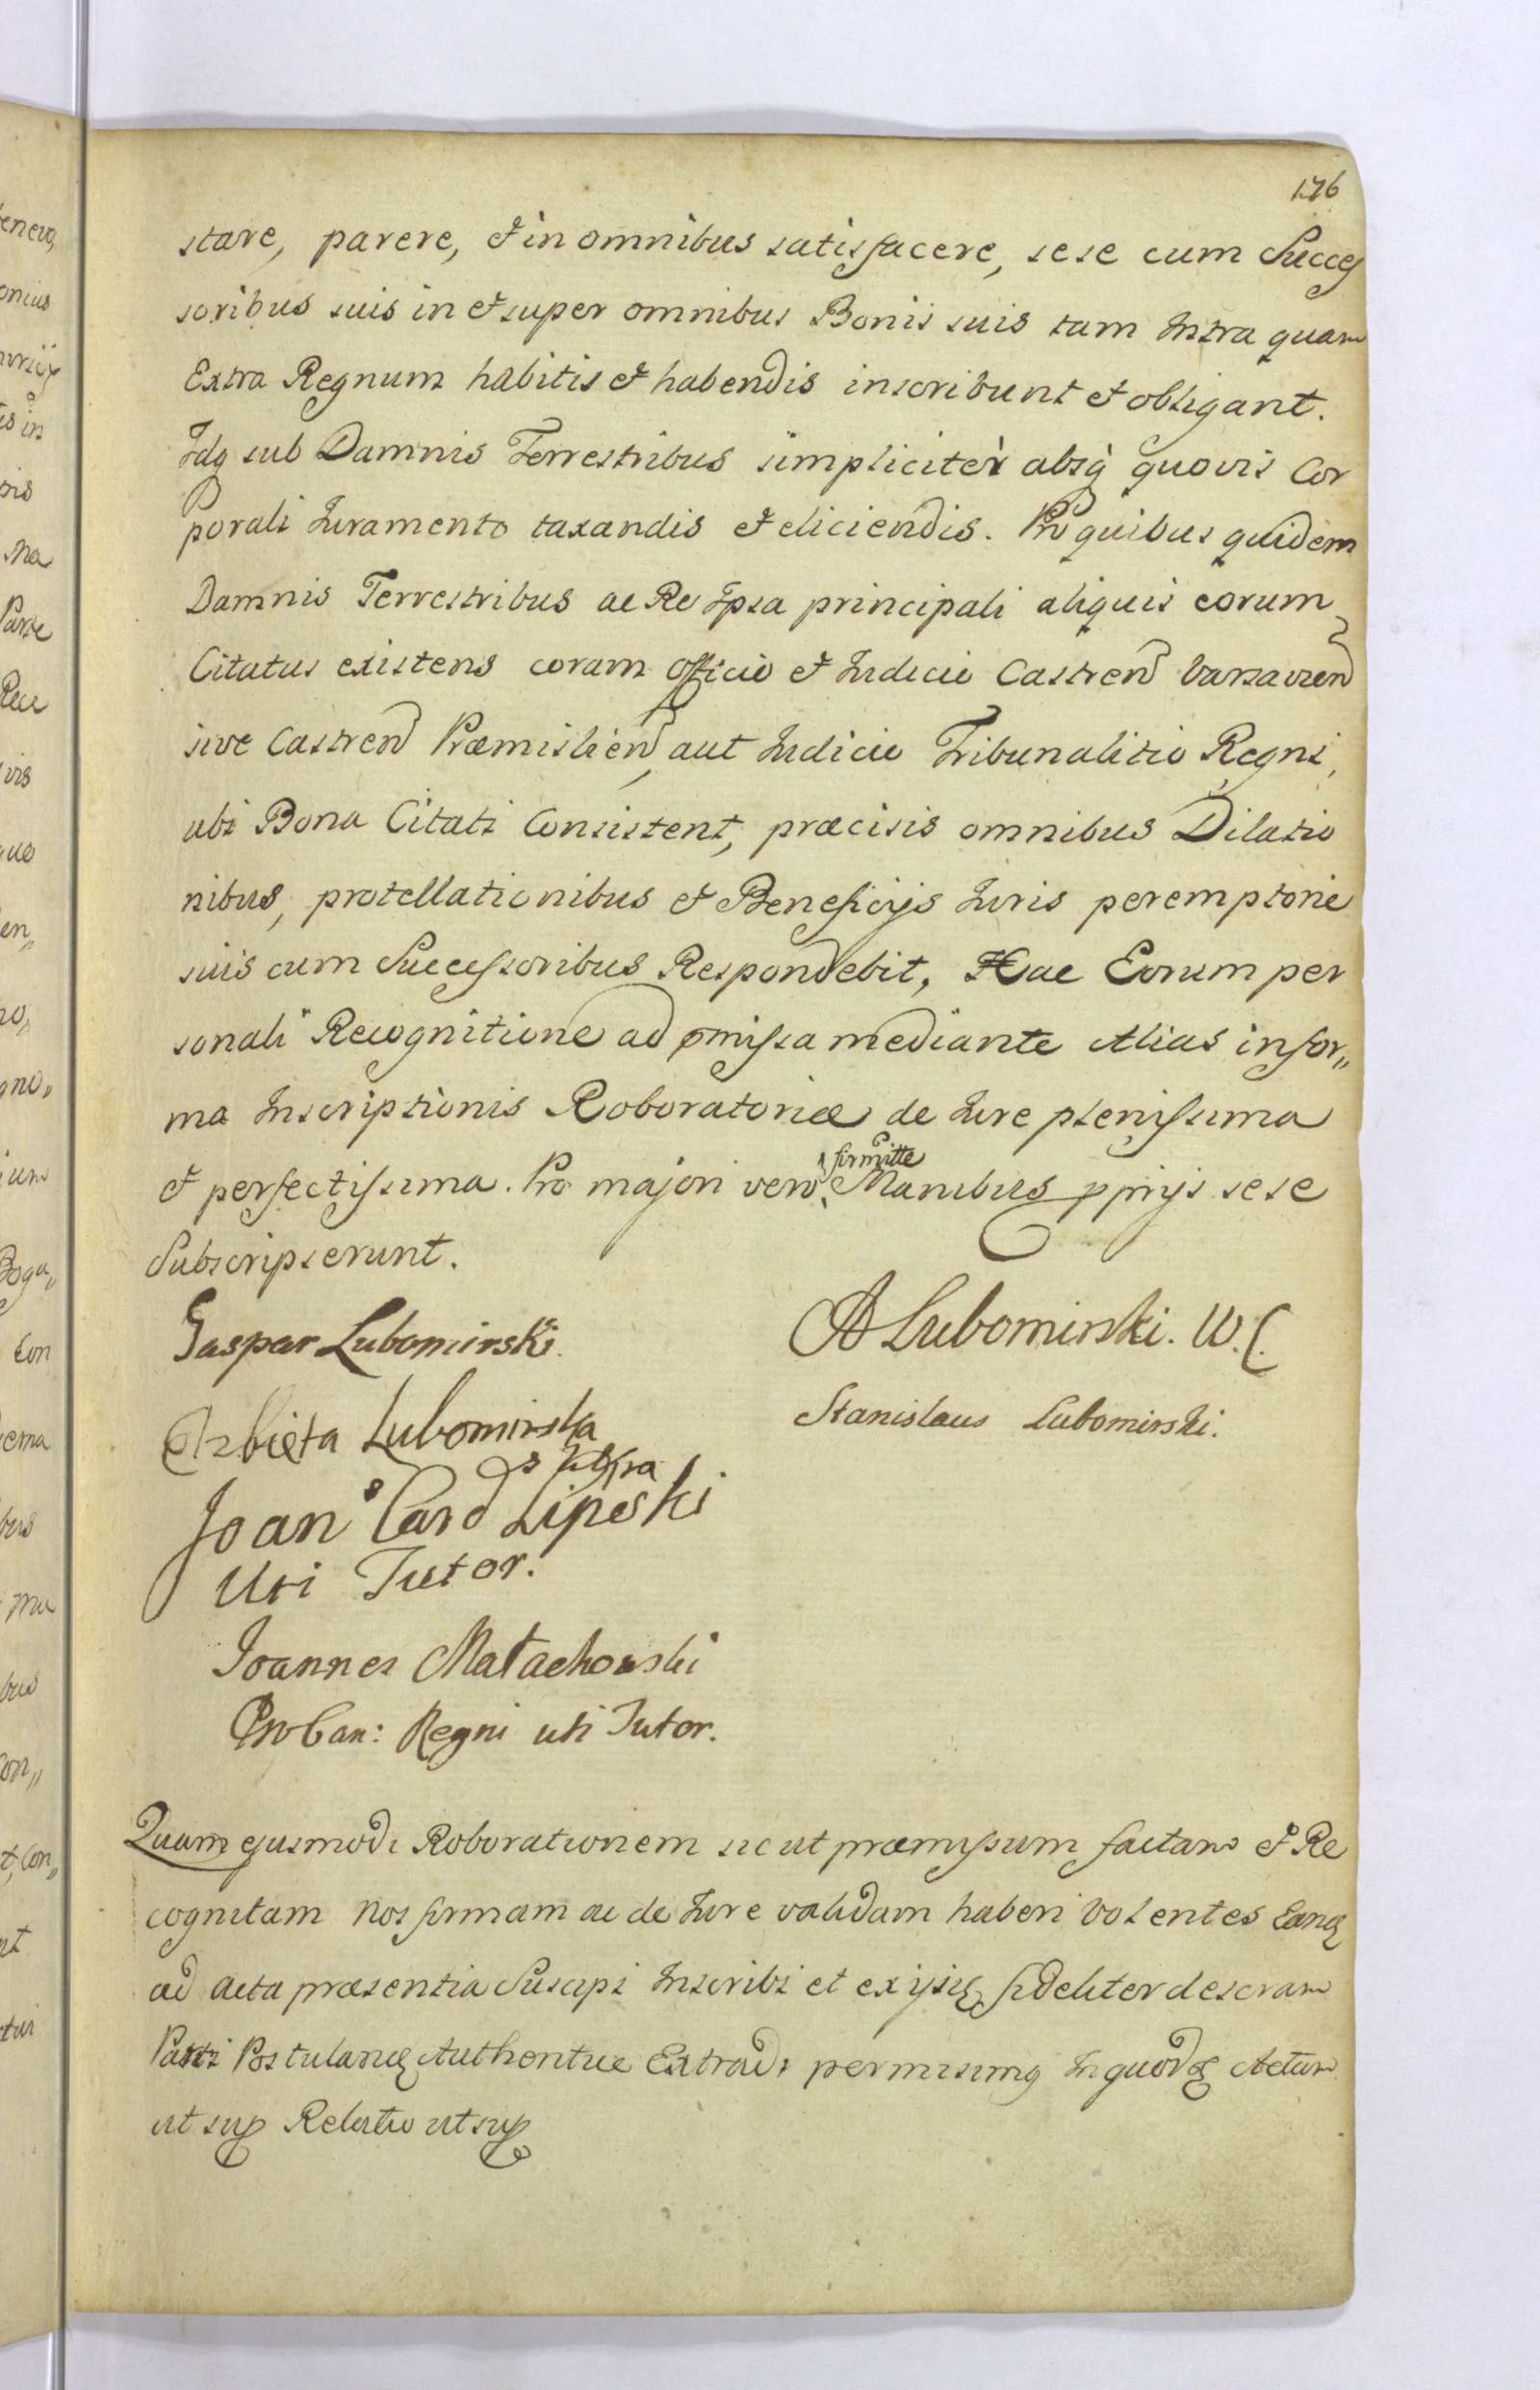 176
stare, parere, et in omnibus satisfacere, sese cum Succes
soribus suis in et super omnibus Bonis suis tam Intra quam
Extra Regnum habitis et habendis inscribunt et obligant.
Idq sub Damnis Terrestribus simplicitèr absq̀ quovis Cor
porali Juramento taxandis et eliciendis. Pro quibus quidem
Damnis Terrestribus ac Re Ipsa principali aliquis eorum
Citatus existens coram Officio et Judicio Castren Varsavien
sive Castren Præmislien, aut Judicio Tribunalitio Regni,
ubi Bona Citati Consistent, præcisis omnibus Dilatio
nibus, protellationibus et Beneficijs Juris peremptorie
suis cum Successoribus Respondebit, Hac Eorum per
sonali Recognitione ad pmissa mediante Alias in for„
ma Inscriptionis Roboratoriæ de Jure plenissima
firmitte
et perfectissima. Pro majori vero Manibus pprijs sese
Subscripserunt.
Gaspar Lubomirski.
A Lubomirski. W. C.
Elzbieta Lubomirska
Stanislaus Lubomirski.
Joan Card Lipski
Uti Tutor.
Joannes Małachowski
Pro Can: Regni uti Tutor.
Quam ejusmodi Roborationem sic ut præmissum factam et Re
cognitam Nos firmam ac de Jure validam haberi Volentes Eamq
ad Acta præsentia Suscipi Inscribi et ex ijsq fideliter descram
Parti Postulanq Authentice Extradi permisimq In quorq Actum
ut sup Relatio ut sup
enero,
onius
is in
Parte
Rece
vis
quo
en„
gno„
Boga„
Con
Con„
t, Con„